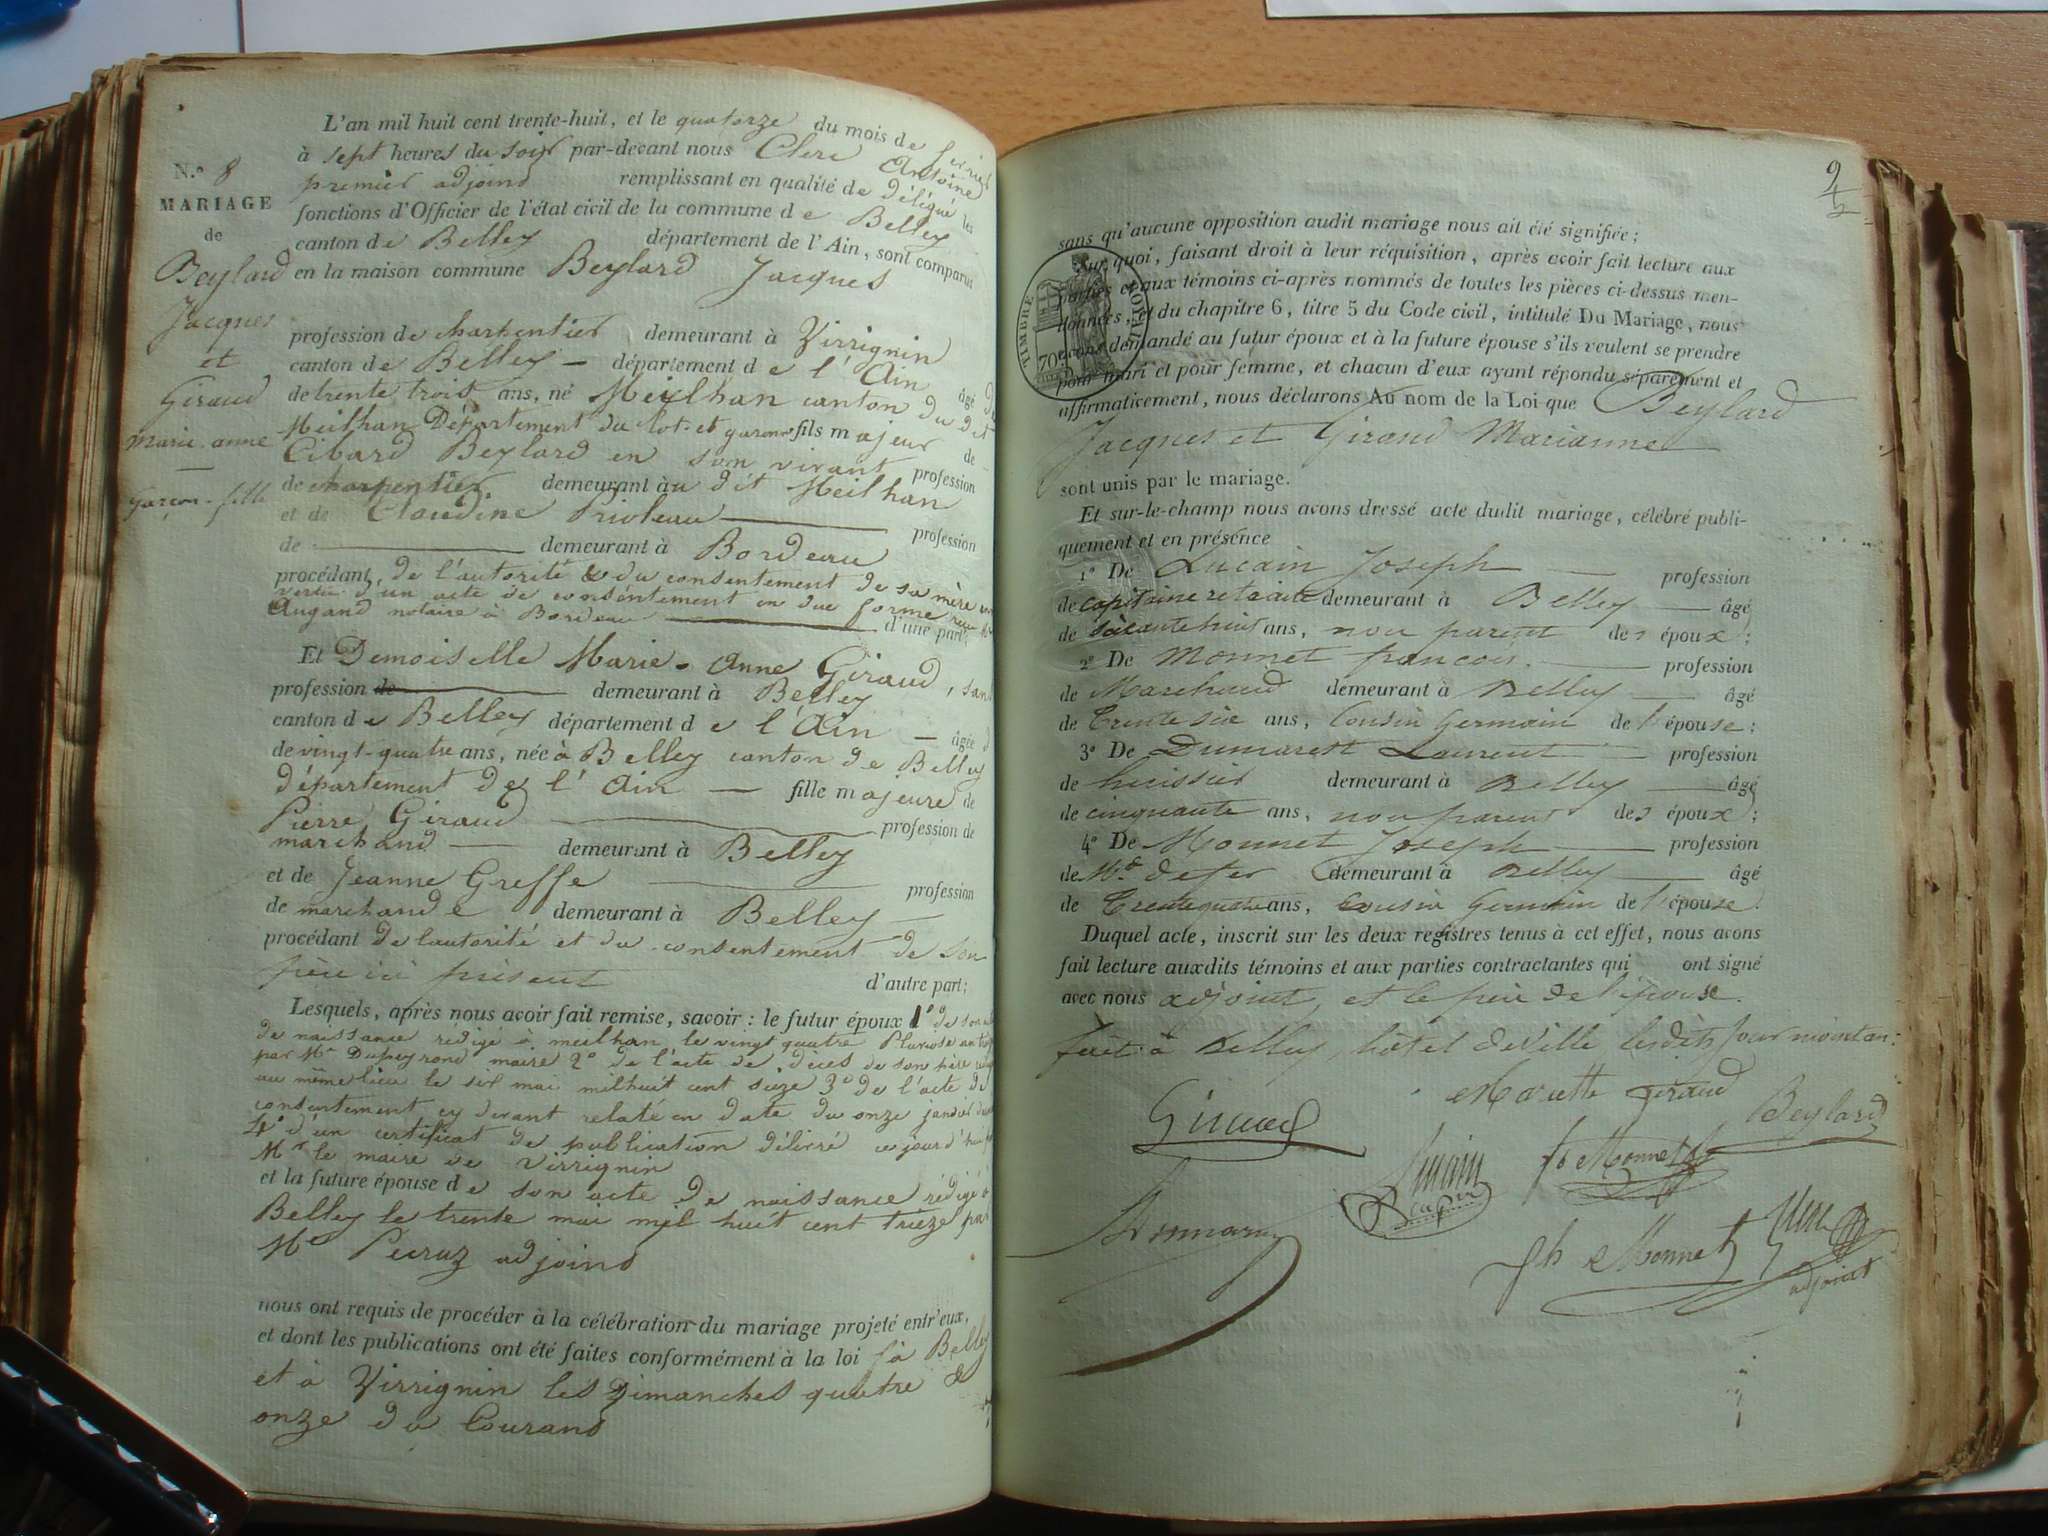 N.º 8
MARIAGE
de
Beylard
Jacques
et
Giraud
Marie-anne
garçon - fille
L'an mil huit cent trente-huit, et le quatorze du mois de fevrier
à sept heures du soir par-devant nous Clerc Antoine
premier adjoind remplissant en qualité de délégué les
fonctions d'Officier de l'état civil de la commune de Belley
canton de Belley département de l'Ain, sont comparus
en la maison commune Beylard Jacques
profession de charpentier demeurant à Virrignin
canton de Belley — département de l'Ain âgé
de trente trois ans, né Meilhan canton du dit
Meilhan Département du lot-et garonne fils majeur de
Cibard Beylard en son vivant profession
de charpentier demeurant au dit Meilhan
et de Claudine Prioleau profession
de demeurant à Bordeau
procédant, de l'autorité & du consentement de sa mère en
vertu d'un acte de consentement en due forme reçu Mr
Augand notaire à Bordeau d'une part;
Et Demoiselle Marie-anne Giraud, sans
profession de demeurant à Belley
canton de Belley département de l'Ain — âgée
de vingt-quatre ans, née à Belley canton de Belley
département de l'Ain — fille majeure de
Pierre Giraud profession de
marchand demeurant à Belley
et de Jeanne Greffe profession
de marchande demeurant à Belley
procédant de l'autorité et du consentement de son
père ici présent d'autre part;
Lesquels, après nous avoir fait remise, savoir: le futur époux 1º de son
de naissance redigé à meilhan le vingt quatre Pluviose an
par Mr Dupeyrond maire 2º de l'acte de décès de son père
au même lieu le six mai mil huit cent seize 3º de l'acte de
consentement cy devant relaté en date du onze janvier
4º d'un certificat de publication délivré cejourd'hui
Mr le maire de Virrignin
et la future épouse de son acte de naissance rédigé à
Belley le trente mai mil huit cent trieze par
Mr Peeruz adjoind
nous ont requis de procéder à la célébration du mariage projeté entr'eux,
et dont les publications ont été faites conformément à la loi à Belley
et à Virrignin les dimanches quatre &
onze du Courand
sans qu'aucune opposition audit mariage nous ait été signifiée;
Sur quoi, faisant droit à leur réquisition, après avoir fait lecture aux
parties et aux témoins ci-après nommés de toutes les pièces ci-dessus men-
tionnées, et du chapitre 6, titre 5 du Code civil, intitulé Du Mariage, nous
avons demandé au futur époux et à la future épouse s'ils veulent se prendre
pour mari et pour femme, et chacun d'eux ayant répondu séparément et
affirmativement, nous déclarons Au nom de la Loi que Beylard
Jacques et Giraud Marianne
sont unis par le mariage.
Et sur-le-champ nous avons dressé acte dudit mariage, célébré publi-
quement et en présence
1º De Lucain Joseph profession
de capitaine retraité demeurant à Belley âgé
de soixante huit ans, non parent des époux;
2º De Monnet françois profession
de Marchand demeurant à Belley âgé
de Trente six ans, Cousin Germain de l'épouse;
3º De Dumarest Laurent profession
de huissier demeurant à Belley âgé
de cinquante ans, non parent des époux;
4º De Monnet Joseph profession
de Md de fer demeurant à Belley âgé
de Trente quatre ans, Cousin Germain de l'épouse.
Duquel acte, inscrit sur les deux registres tenus à cet effet, nous avons
fait lecture auxdits témoins et aux parties contractantes qui ont signé
avec nous adjoint, et le père de l'épouse.
fait à Belley, hôtel de ville lesdits jour mois et an:
Mariette Giraud
Giraud
Beylard
Lucain
fs Monnet
Jh Monnet
adjoint
TIMBRE ROYAL
70